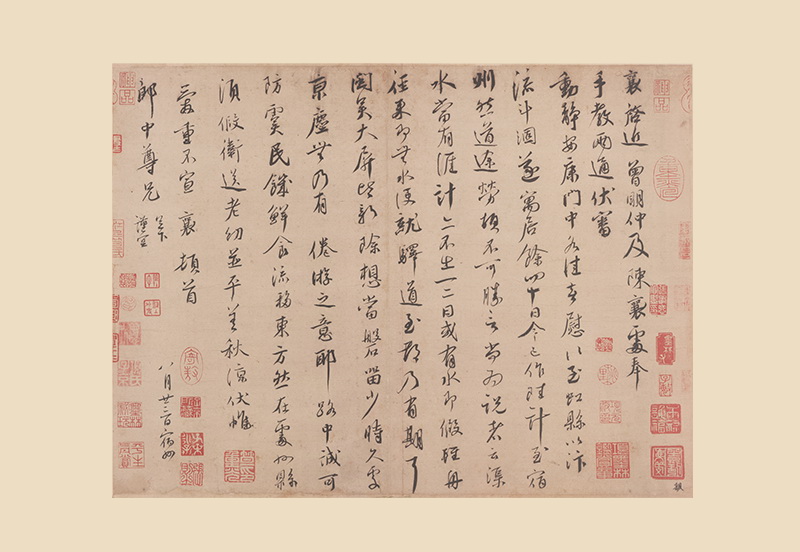 襄啓近曾明仲及陳襄處奉
手教兩通伏審
動靜安康門中各佳喜慰〻至虹縣以汴
流斗涸遂寓居餘四十日今已作陸計至宿
州然道途勞頓不可勝言尚為說者云渠
水當有涯計亦不出一二日或有水即假輕舟
徑來即無水便就驛道至都乃有期耳
閎美大屏皆新除想當磐留少時久處
京塵無乃有倦游之意耶路中誠可
防虞民饑鮮食流移東方然在處州縣
須假衛送老幼並平善秋涼伏惟
愛重不宣襄頓首
郎中尊兄足下
謹空
八月廿三日宿州